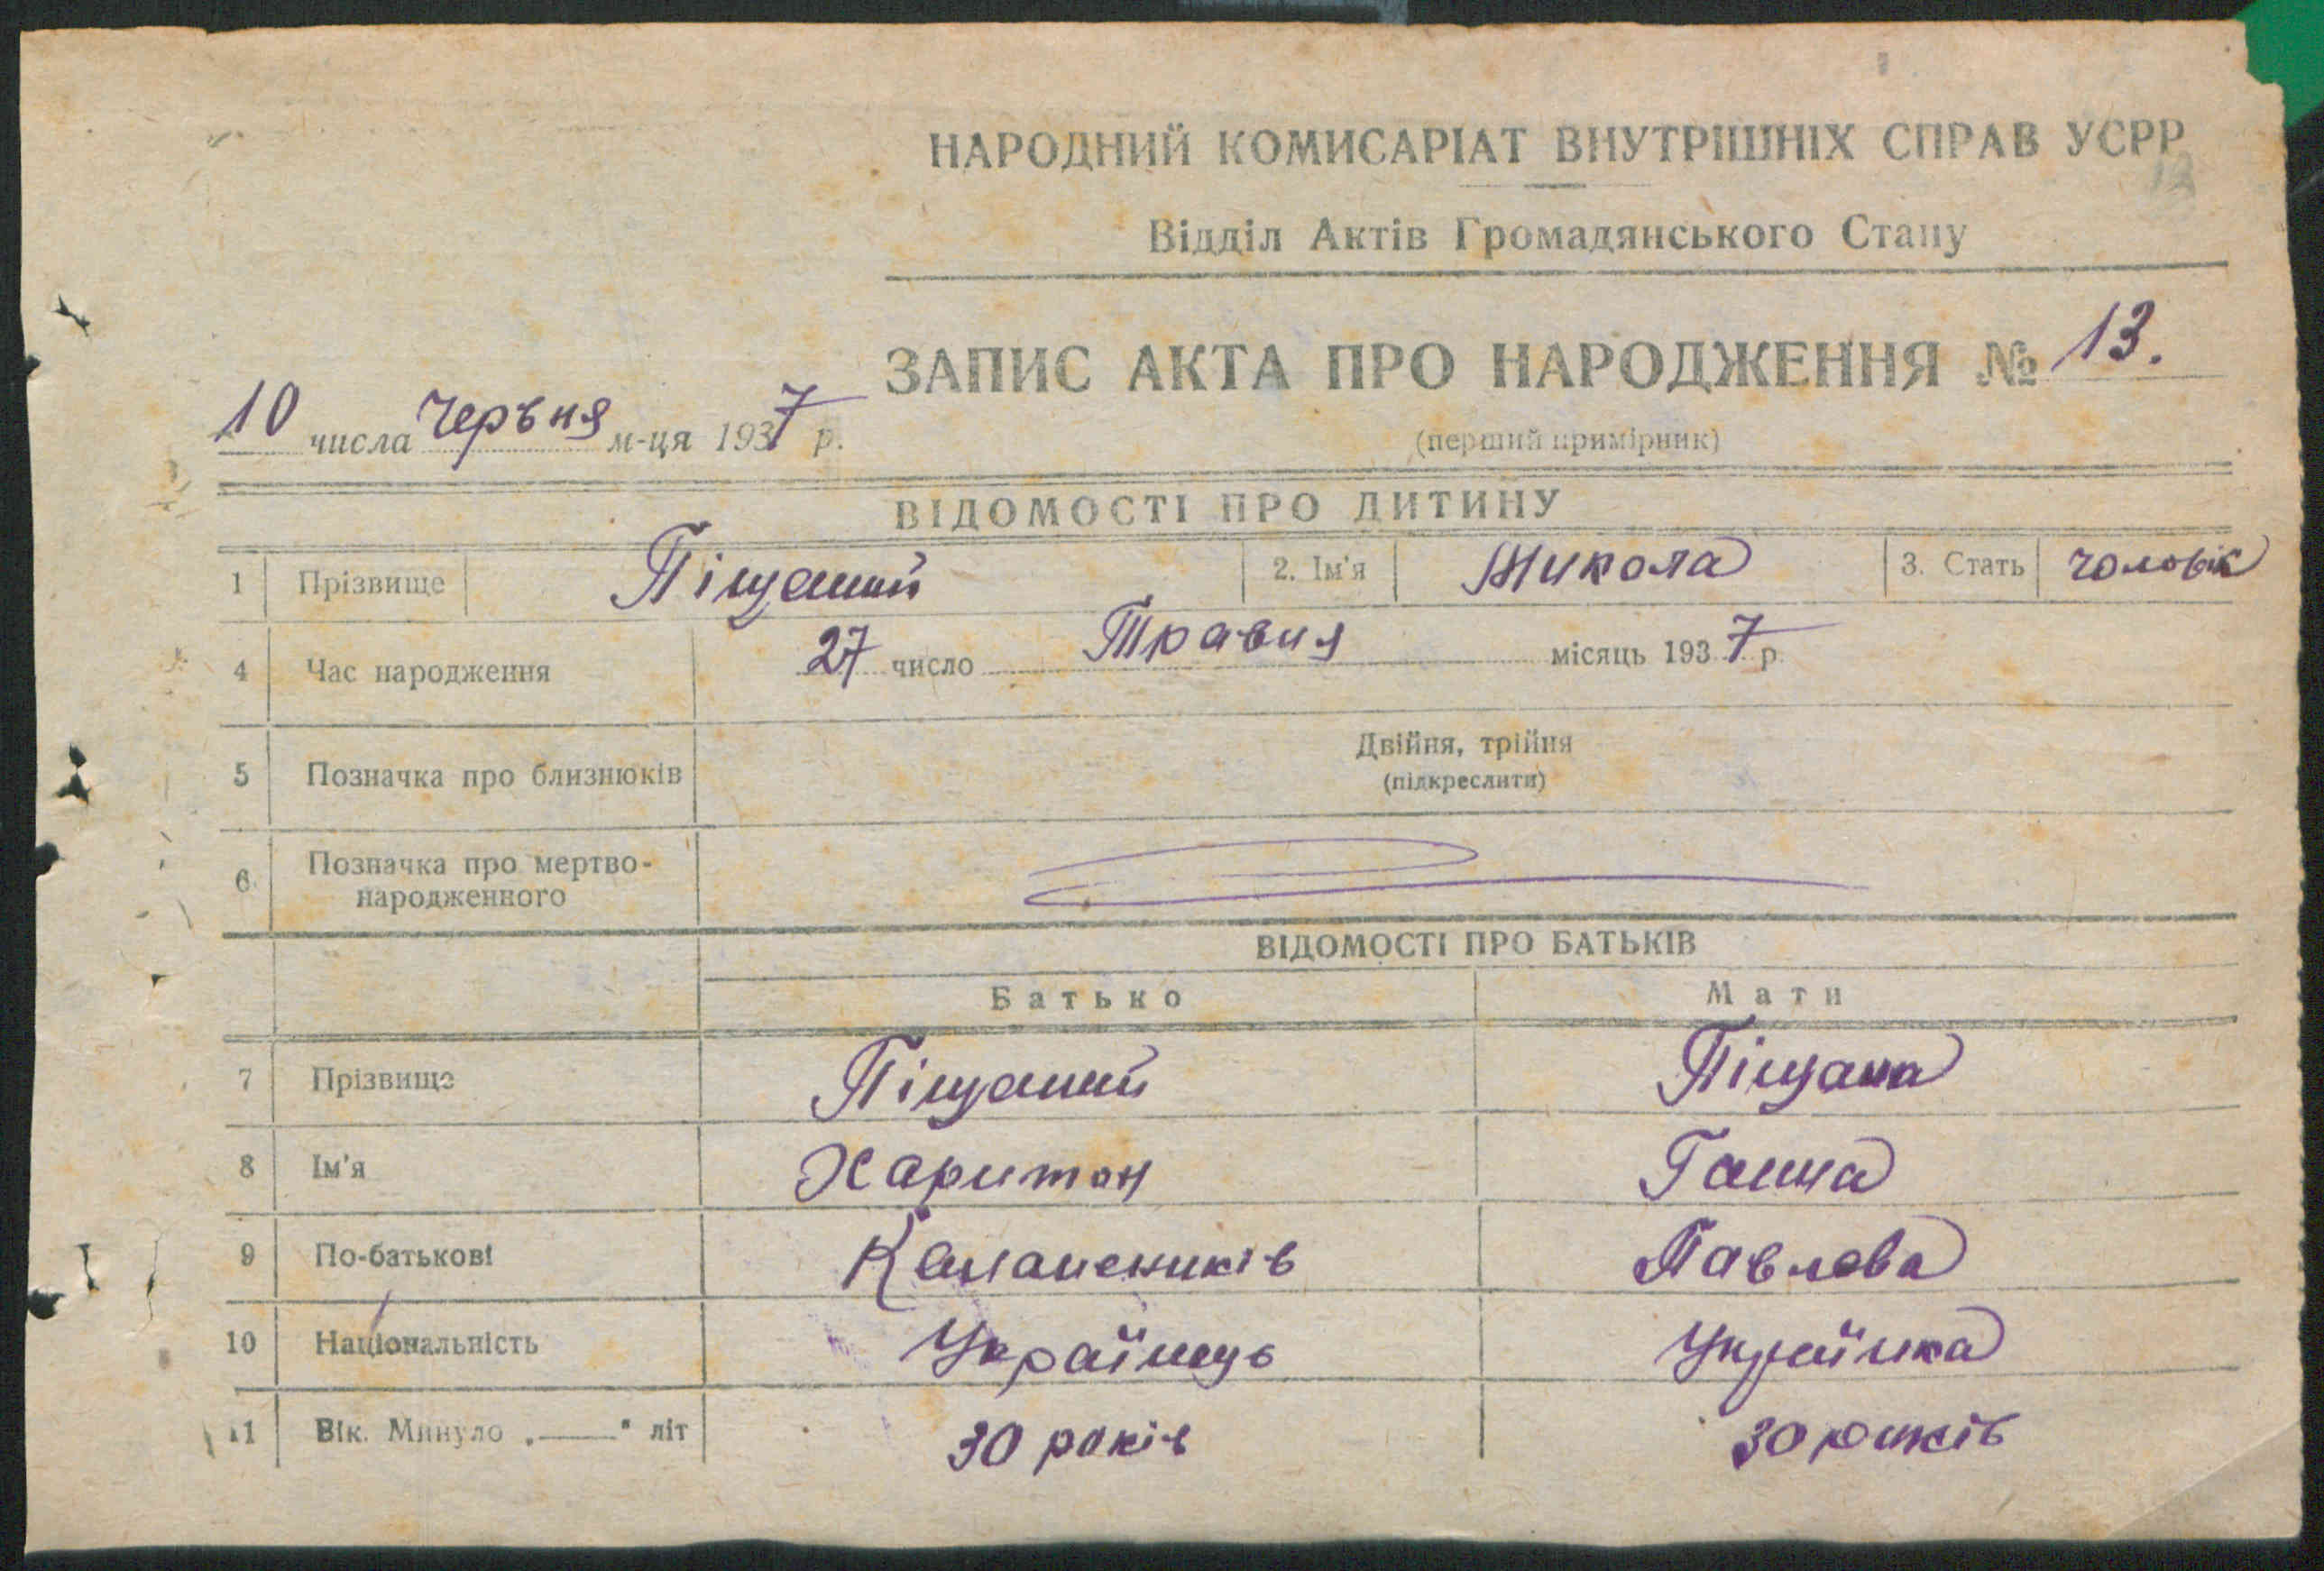 НАРОДНИЙ КОМИСАРІАТ ВНУТРІШНІХ СПРАВ УСРР
Відділ Актів Громадянського Стану
ЗАПИС АКТА ПРО НАРОДЖЕННЯ № 13.
10 числа Червня м-ця 1937 р.
(перший примірник)
ВІДОМОСТІ ПРО ДИТИНУ
1 Прізвище Піщаний 2. Ім'я Микола 3. Стать чоловік
4 Час народження 27 число Травня місяць 1937 р.
5 Позначка про близнюків Двійня, трійня
(підкреслити)
6 Позначка про мертво-
народженного
ВІДОМОСТІ ПРО БАТЬКІВ
Батько Мати
7 Прізвище Піщаний Піщана
8 Ім'я Харитон Ганна
9 По-батькові Павлова
10 Національність Українць Українка
11 Вік. Минуло „——" літ 30 років 30 років